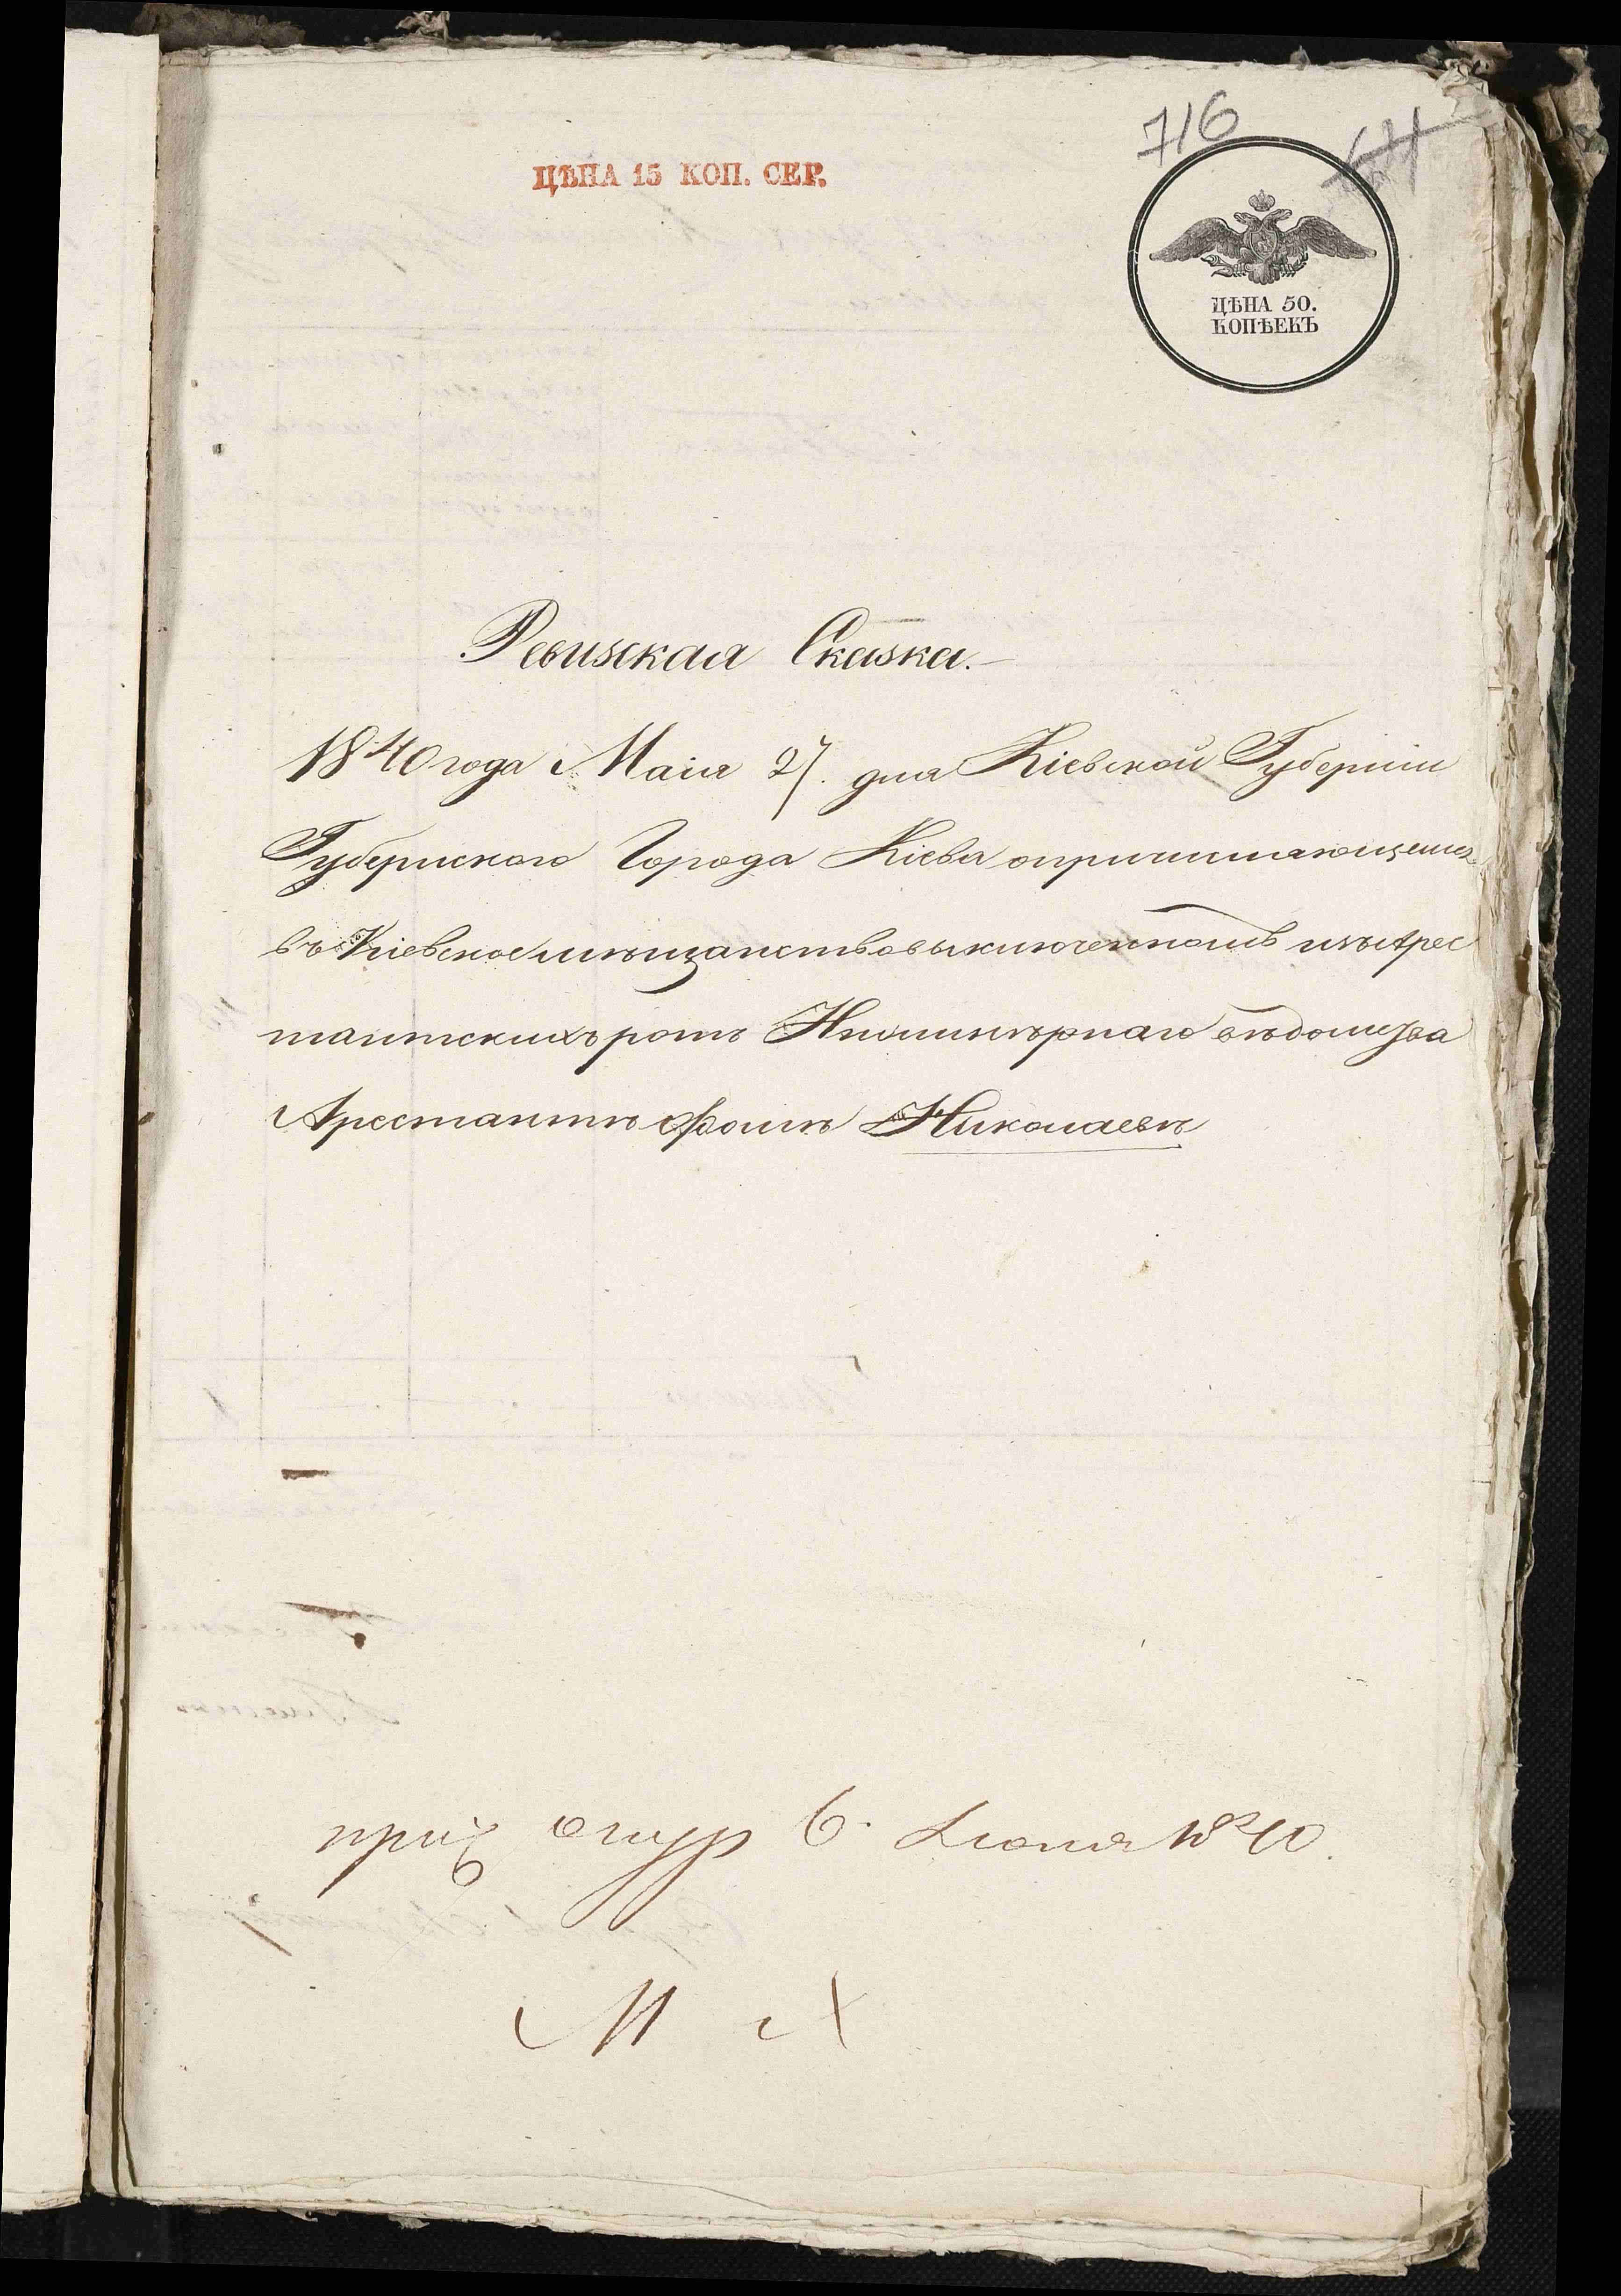 716
ЦѢНА 15 КОП. СЕР.
ЦѢНА 50.
КОПѢЕКЪ
Ревизская Сказка.
1840 года Маія 27. дня Кіевской Губерніи
Губернского Города Кіева опричитающемся
въ Кіевское мѣщанство выключенномъ изъ Арес
тантскихъ ротъ Инженернаго вѣдомства
Арестантѣ Фомѣ Николаевѣ
6. Іюня 1840.
М